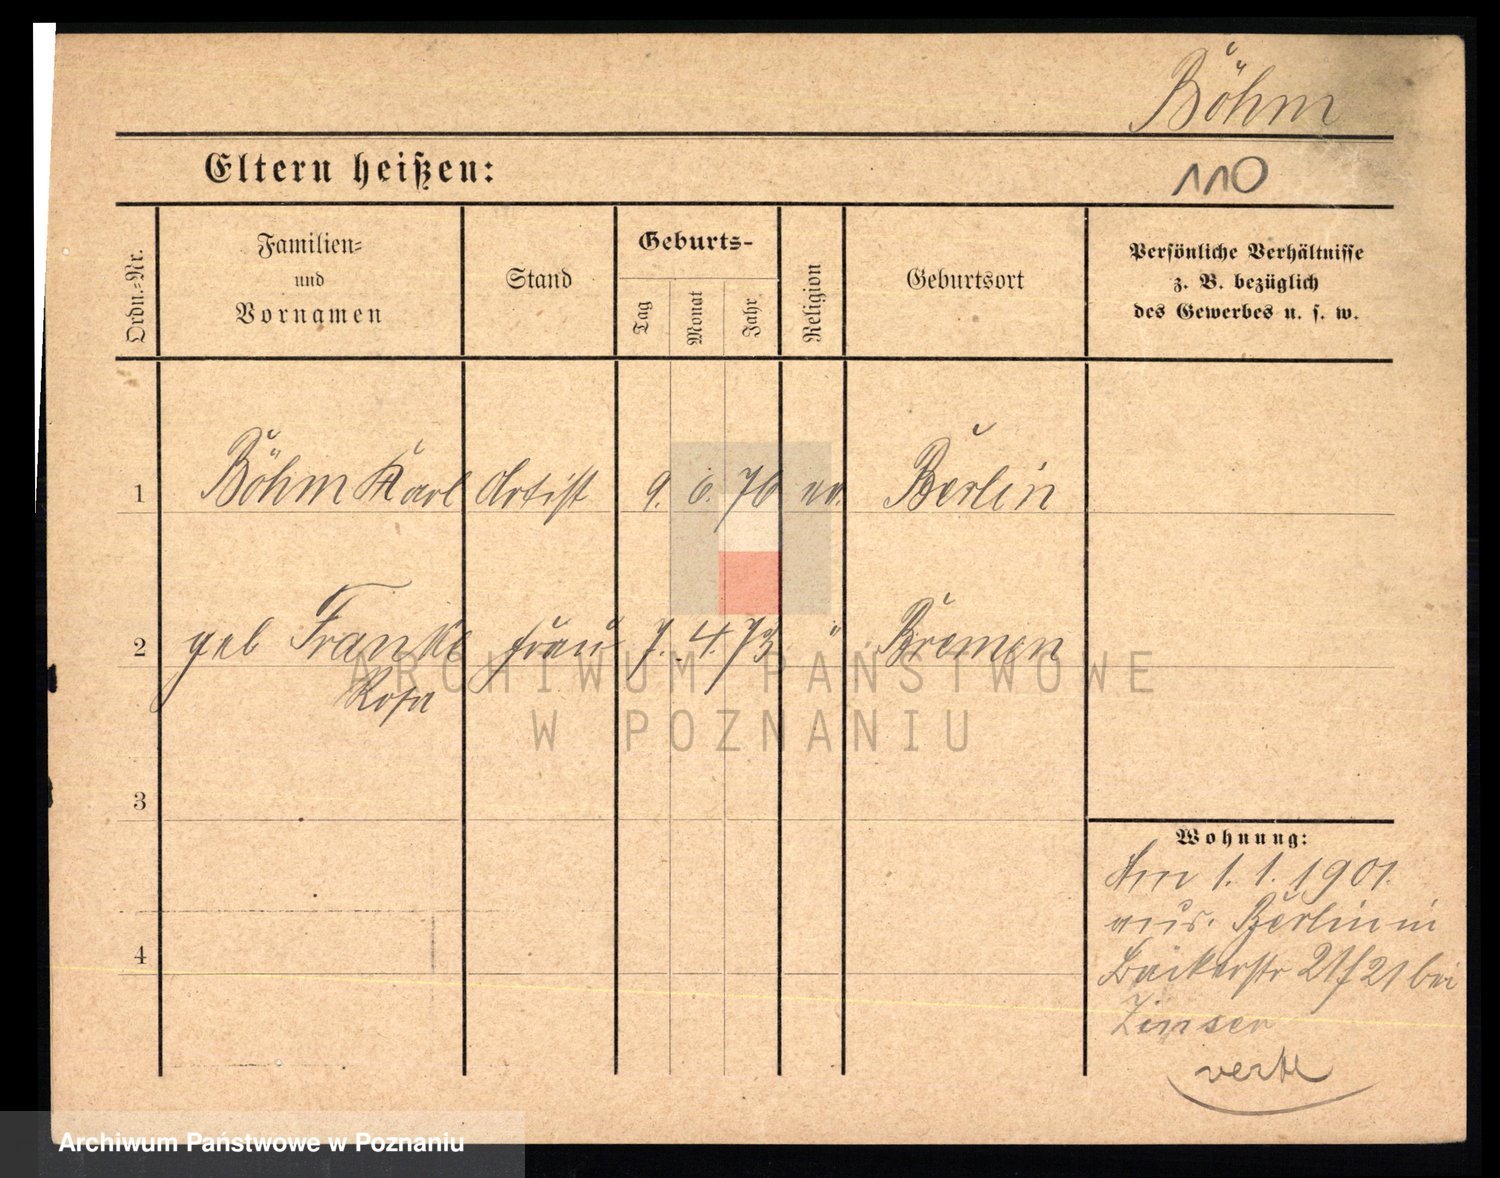 Böhm
Eltern heißen:
110
Ordn.-Nr.
Familien-
und
Vornamen
Stand
Geburts-
Tag
Monat
Jahr
Religion
Geburtsort
Persönliche Verhältnisse
z. B. bezüglich
des Gewerbes u. s. w.
1 Böhm Karl Artist 9. 6. 76 ev. Berlin
2 geb Franke Frau 7. 4. 73 " Bremen
Rosa
3
4
Wohnung:
Am 1. 1. 1901.
aus. Berlin in
21/21 bei
Zinser
ARCHIWUM PAŃSTWOWE
W POZNANIU
Archiwum Państwowe w Poznaniu